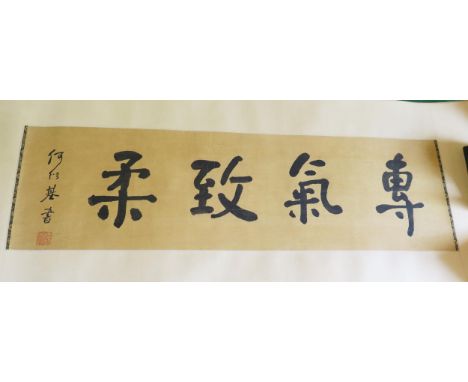 專氣致柔
何紹基書